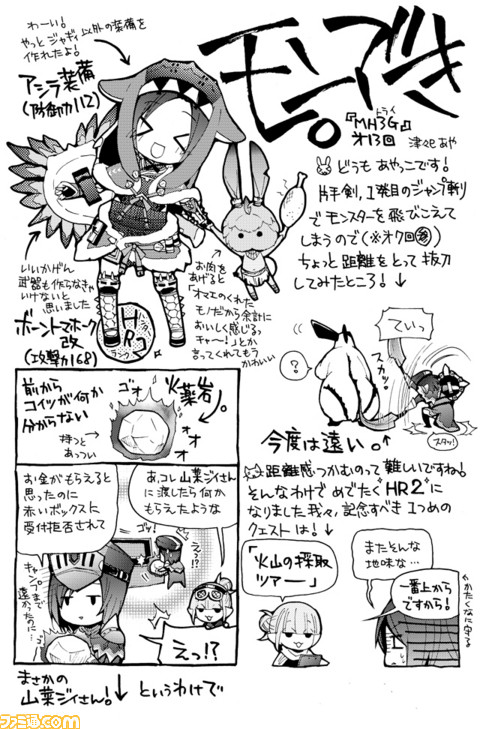 モンすき。
『MH3G』
トライ
オ13回
津々巳あや
わーい!
やっとジャギィ以外の装備を
作れたよ!
アシラ装備
(防御力112)
どうも あやっこです!
片手剣、1発目のジャンプ斬り
でモンスターを飛びこえて
しまうので(※オ7回参)
ちょっと距離をとって抜刀
してみたところ!↓
いいかげん
武器も作らなきゃ
いけないなと
思いました
ボーントマホーク
改
(攻撃力168)
お肉を
あげると
「オマエのくれた
モノだから余計に
おいしく感じる。
チャー!」とか
言ってくれてもう
かわいい
HR
?
スカッ
ていっ
スタッ!
今度は遠い。
距離感つかむのって難しいですね!
そんなわけで めでたく HR2に
なりました我々、記念すべき1つめの
クエストは!↓
前から
コイツが何か
分からない
持つと
あっつい
ゴオ
オオ
火薬岩。
お金がもらえると
思ったのに
赤いボックスに
受付拒否されて
キャンプまで
遠かったのに…
あ、コレ山菜ジイさん
に渡したら何か
もらえたような
ゴッ!
えっ!?
えっ!?
「火山の採取
ツアー」
またそんな
地味な…
一番上から
ですから!
←かたくなに守る
まさかの
山菜ジイさん!↓
というわけで
ファミ通.com